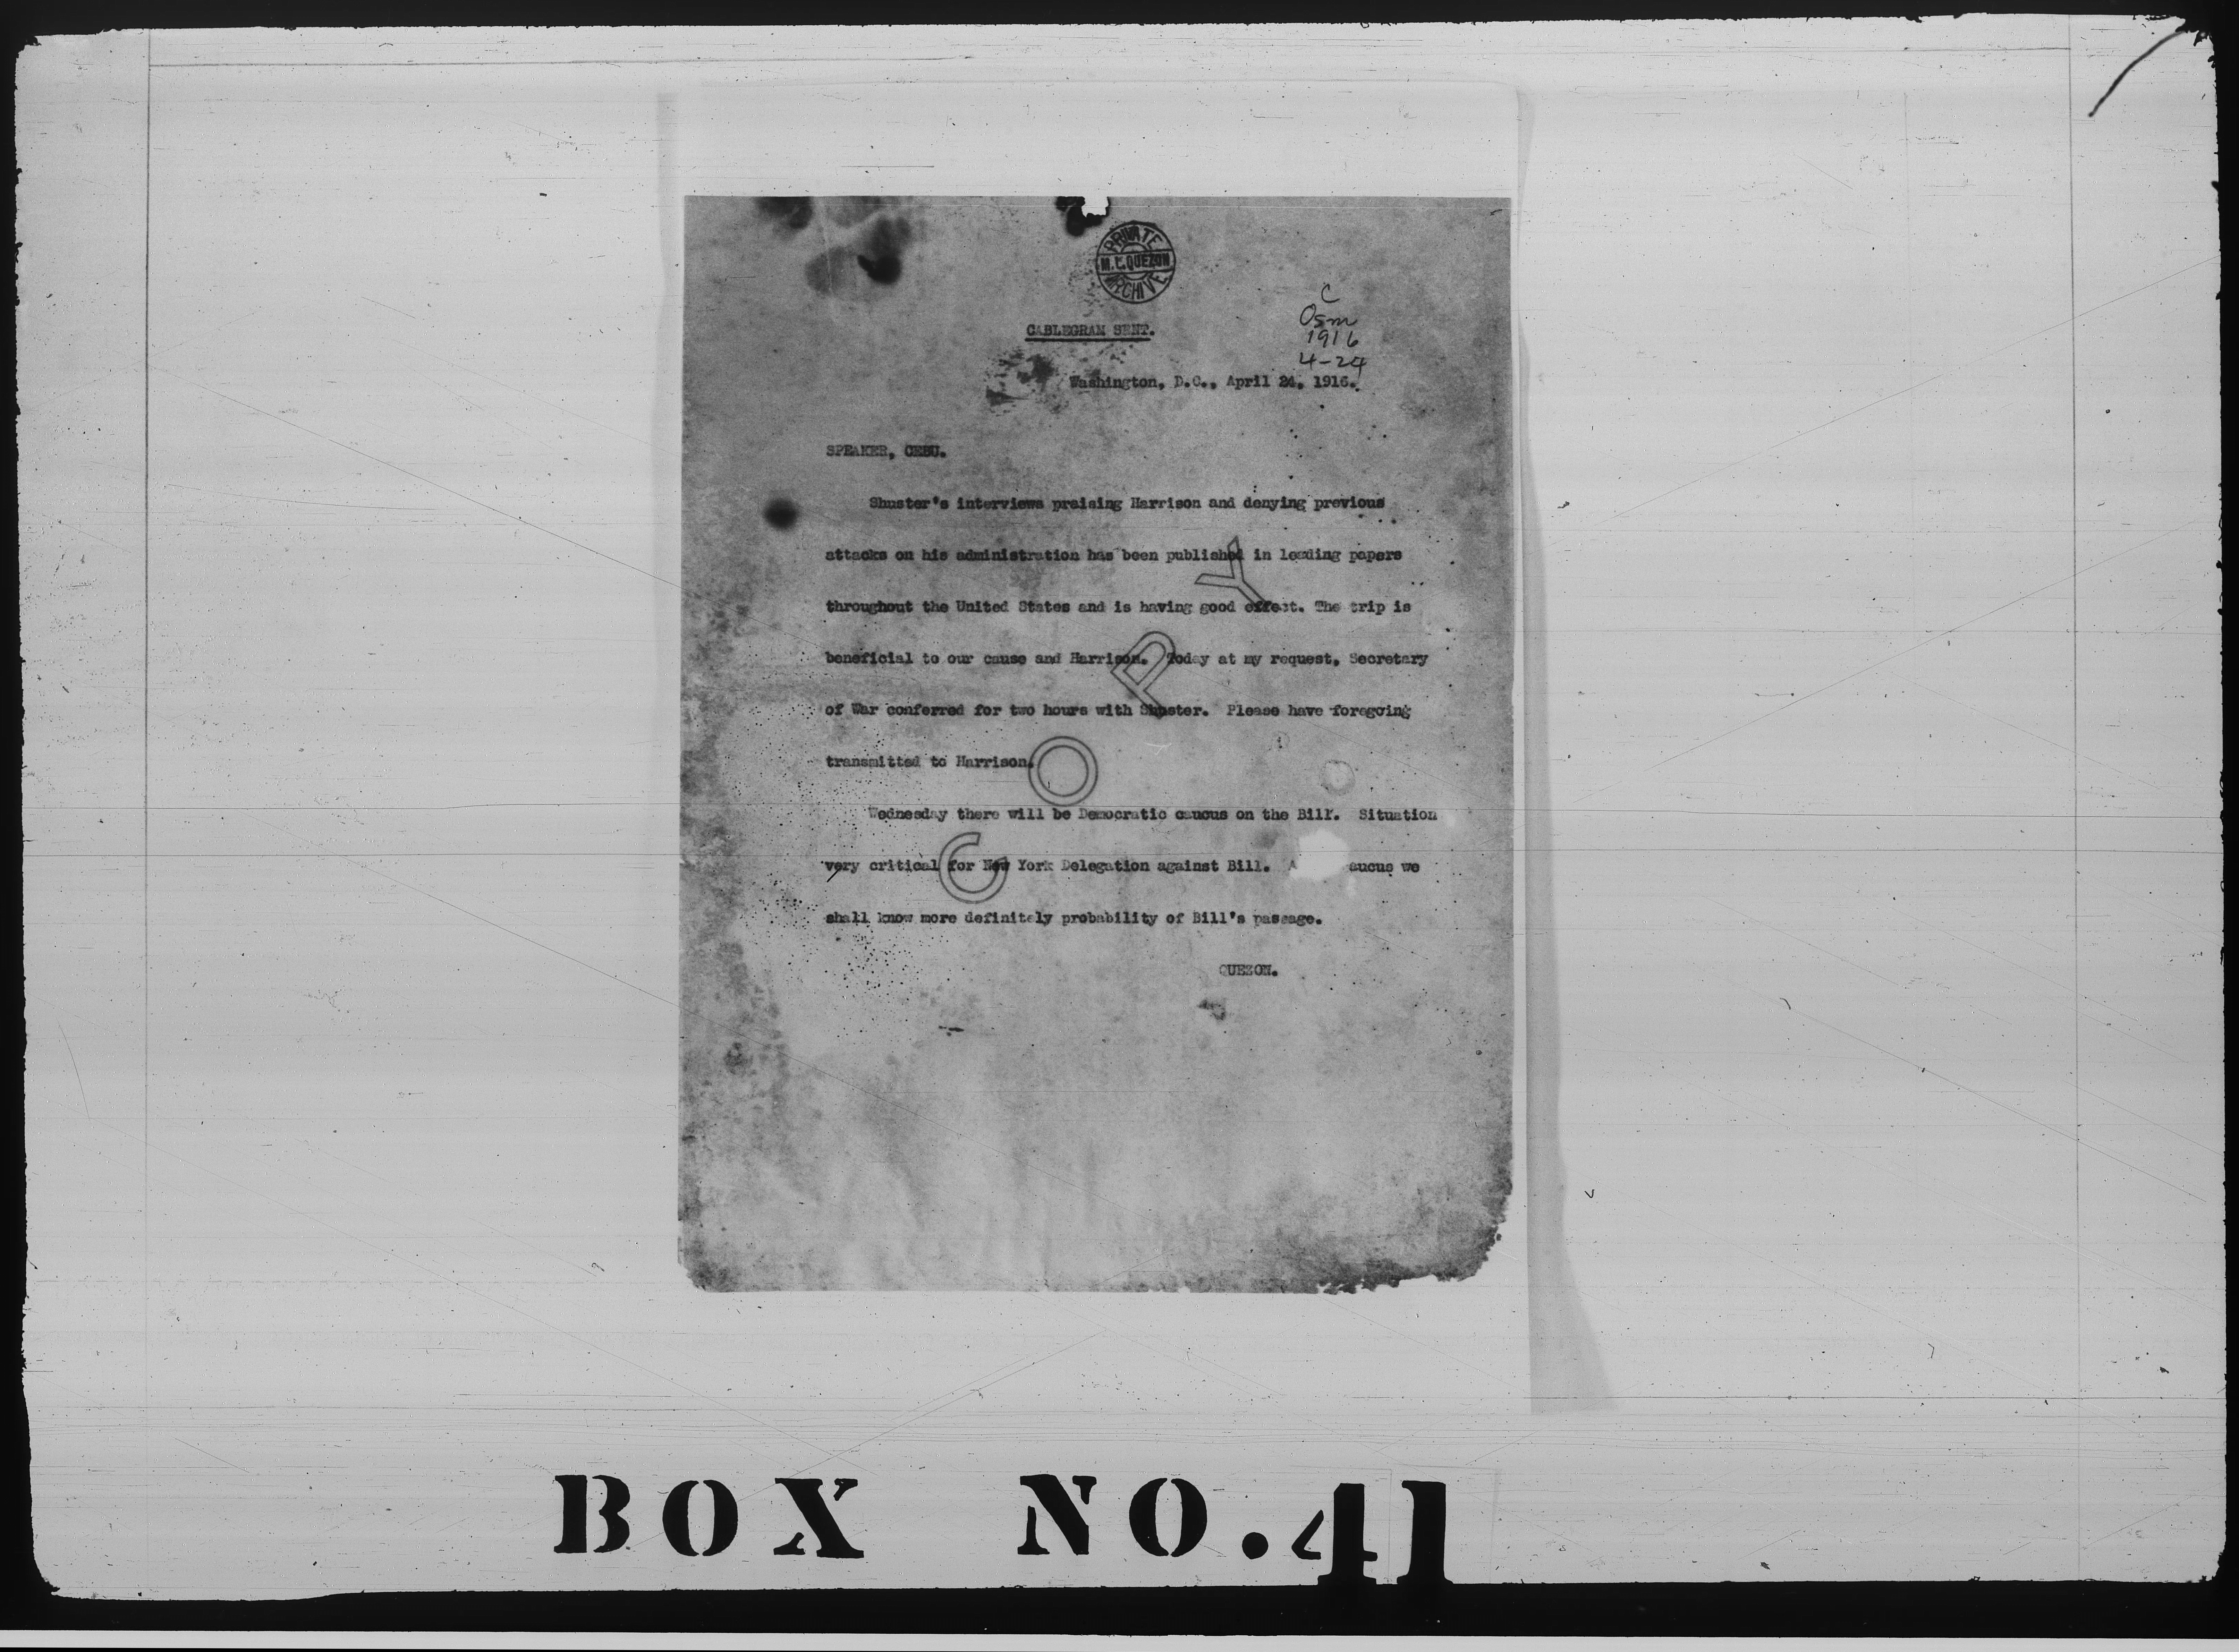 PRIVATE
M.L.QUEZON
ARCHIVE
C
Osm
1916
4-24
CABLEGRAM SENT.
Washington, D.C., April 24, 1916.
SPEAKER, CEBU.
Shuster's interviews praising Harrison and denying previous
attacks on his administration has been published in leading papers
throughout the United States and is having good effect. The trip is
beneficial to our cause and Harrison. Today at my request, Secretary
of War conferred for two hours with Shuster. Please have foregoing
transmitted to Harrison.
Wednesday there will be Democratic caucus on the Bill. Situation
very critical for New York Delegation against Bill. A aucus we
shall know more definitely probability of Bill's passage.
QUEZON.
COPY
BOX NO.41